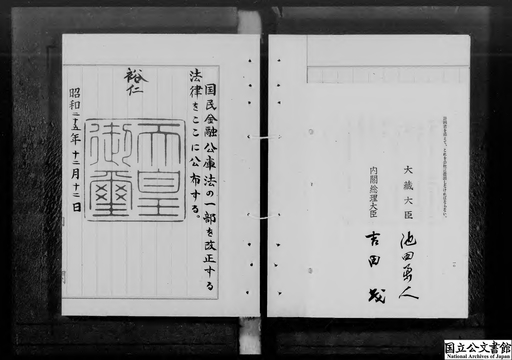 国民金融公庫法の一部を改正する
法律をここに公布する。
裕仁
天皇
御璽
昭和二十五年十二月十二日
大蔵大臣 池田勇人
内閣総理大臣 吉田茂
国立公文書館
National Archives of Japan